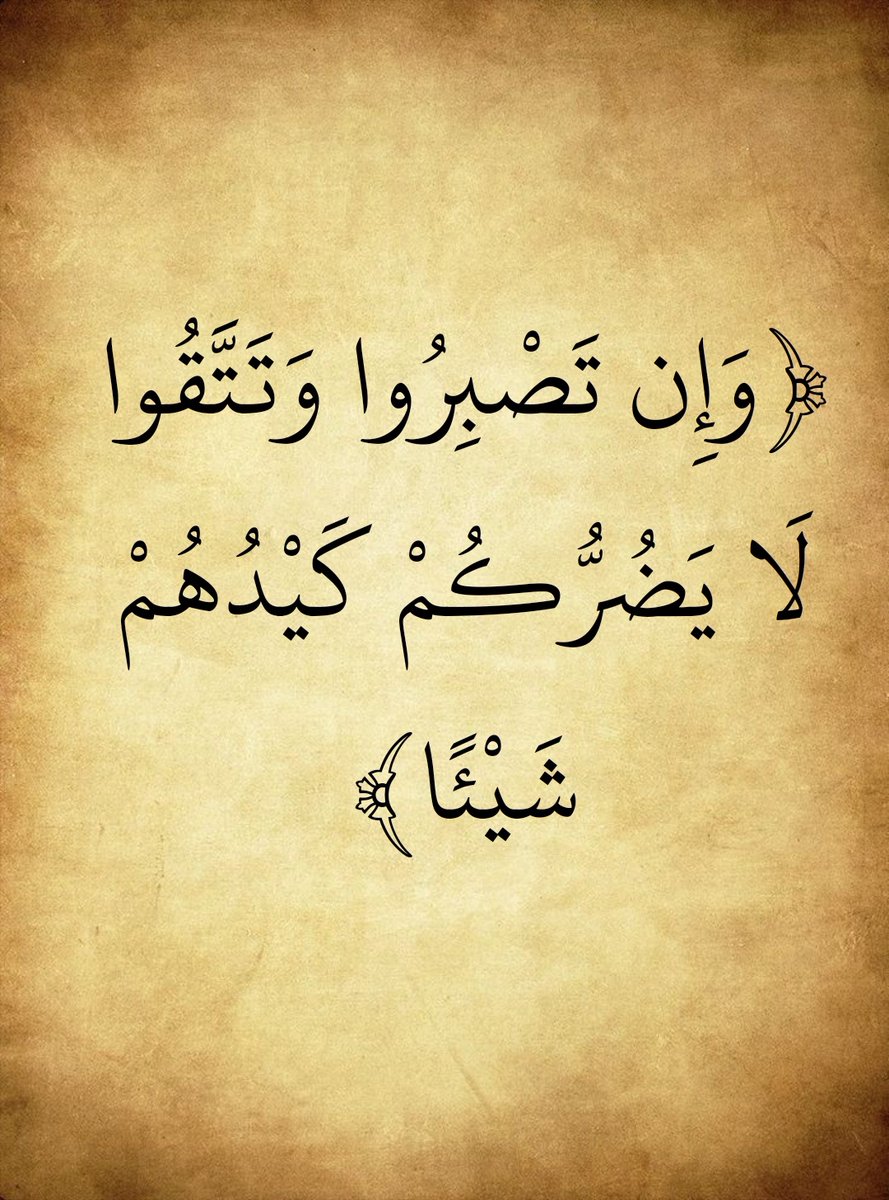 ﴿وَإِن تَصْبِرُوا وَتَتَّقُوا
لَا يَضُرُّكُمْ كَيْدُهُمْ
شَيْئًا﴾